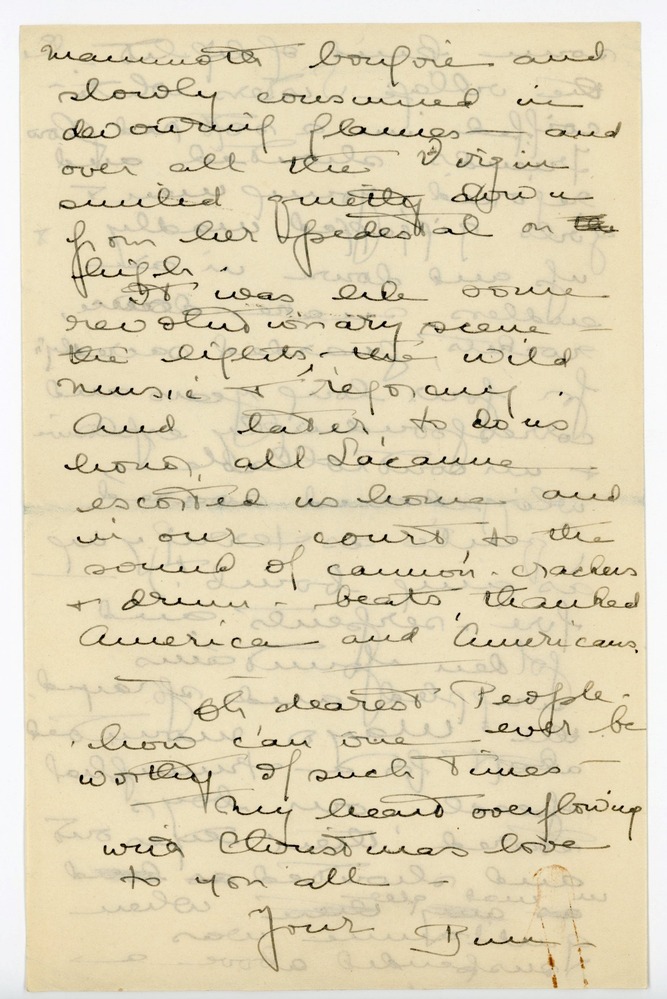 mammoth bonfire and
slowly consumed in
devouring flames — and
over all the Virgin
smiled quietly down
from her pedestal on the
high.
It was like some
revolutionary scene —
the lights - the wild
music +
And later to do us
honor, all Lacanne
escorted us home and
in our court to the
sound of cannon-crackers
+ drum-beats, thanked
America and Americans.
Oh dearest People -
how can one ever be
worthy of such Times —
My heart overflowing
with Christmas love
to you all —
Your